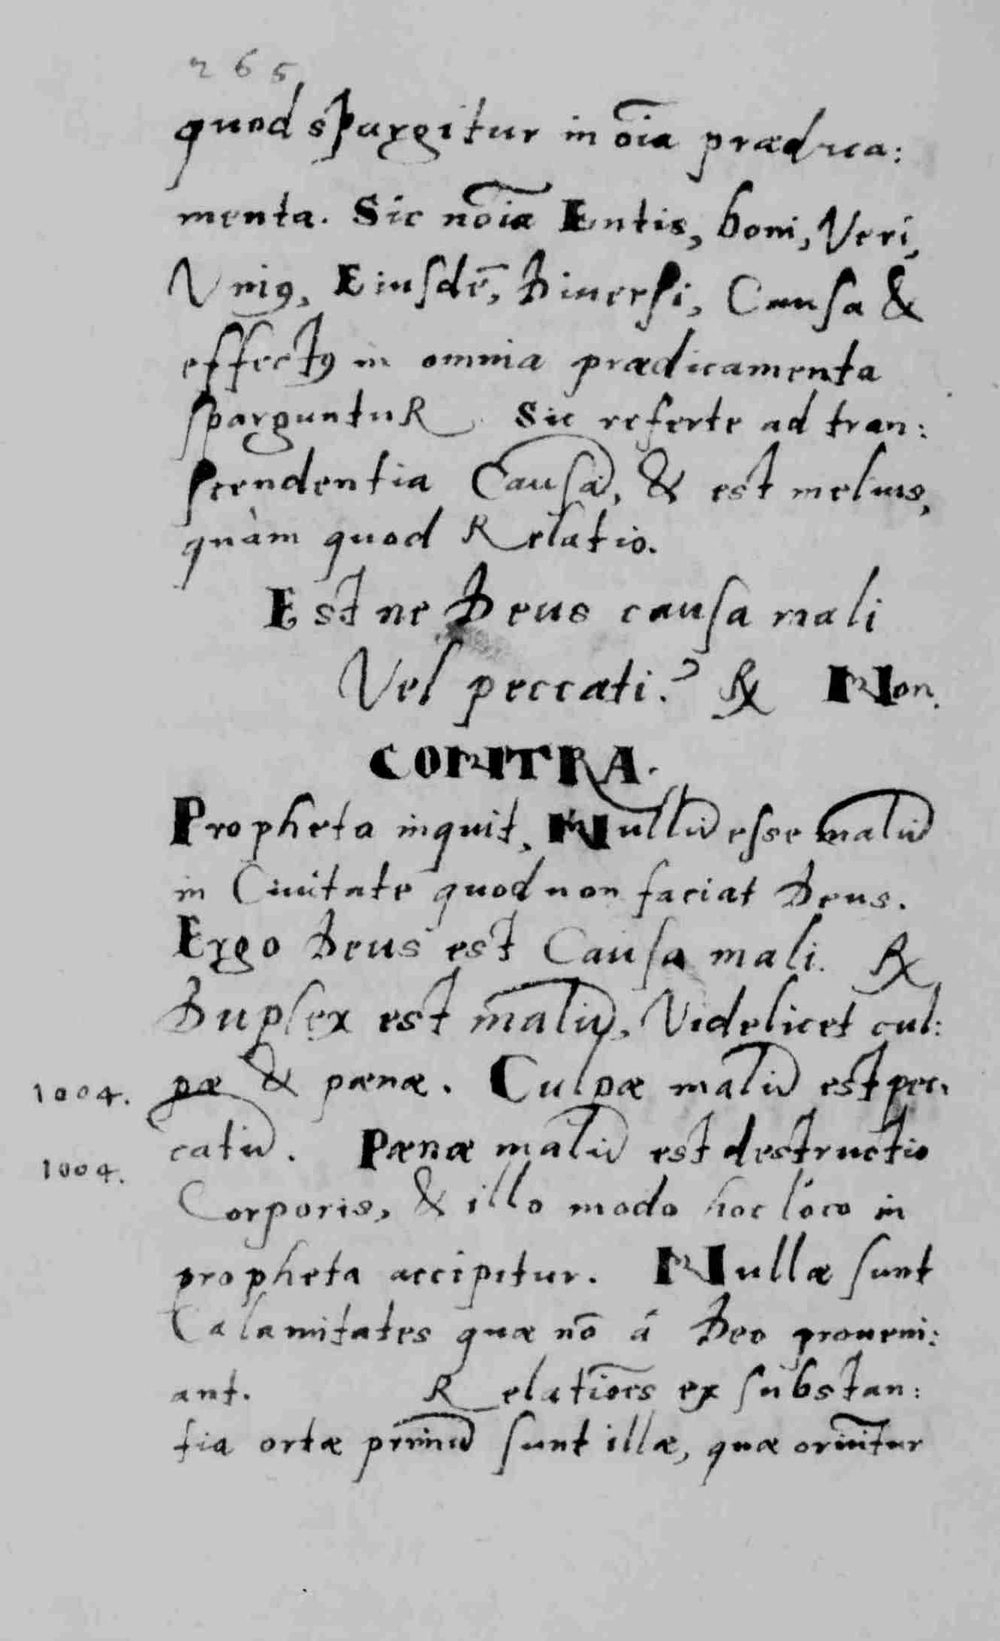 265
quod spargitur in oīa prædica:
menta. Sic nōia Entis, boni, Veri,
Uniꝰ, Eiusdē, Diuersi, Causa &
effectꝰ in omnia prædicamenta
sparguntuR. Sic referte ad tran:
scendentia Causā, & est melius,
quàm quod Relatio.
Est ne Deus causa mali
Vel peccati? ℞ Non.
CONTRA.
Propheta inquit, Nullū esse malū
in Ciuitate quod non faciat Deus.
Ergo Deus est Causa mali. ℞
Duplex est malū, Videlicet cul:
1004. pæ & pænæ. Culpæ malū est pec:
catū. Pænæ malū est destructio
1004.
Corporis, & illo modo hoc loco in
propheta accipitur. Nullæ sunt
Calamitates quæ nō á Deo proueni:
ant. Relatiōes ex substan:
tia ortæ primū sunt illæ, quæ oriūtur